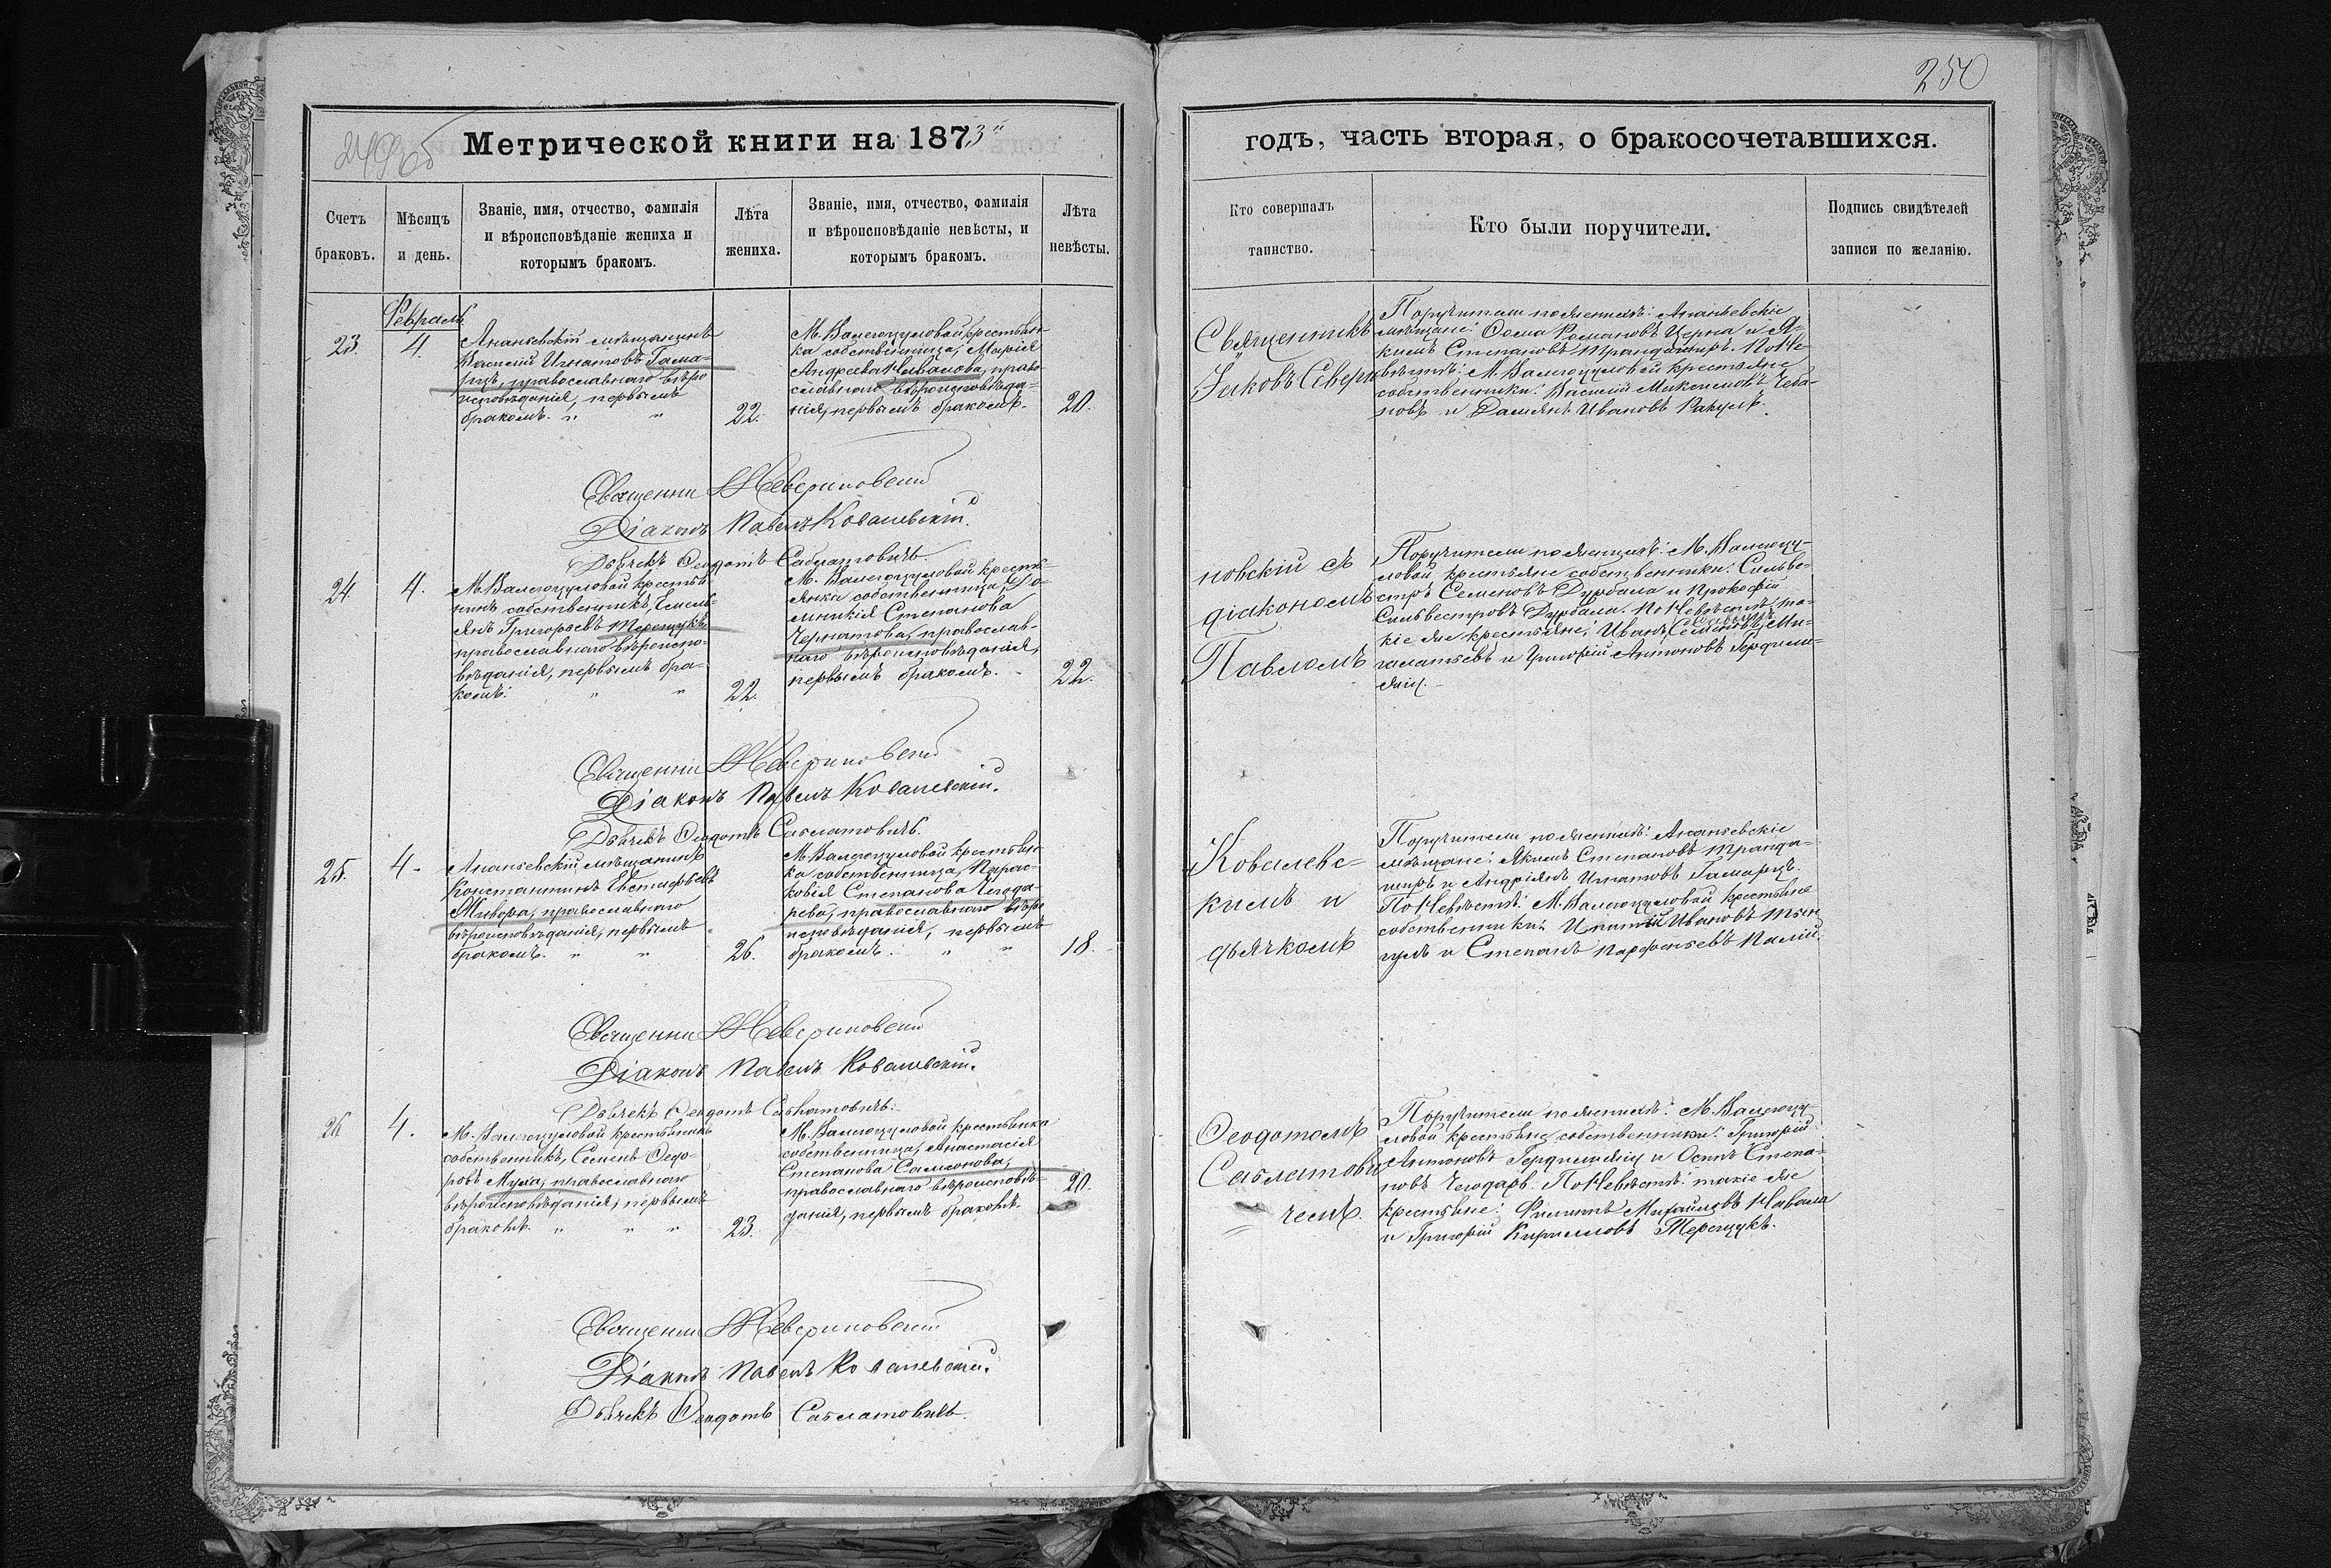 250
249об
Метрической книги на 1873й
годъ, часть вторая, о бракосочетавшихся.
Счетъ браковъ.
Мѣсяцъ и день.
Званіе, имя, отчество, фамилія
и вѣроисповѣданіе жениха и
которымъ бракомъ.
Лѣта жениха.
Званіе, имя, отчество, фамилія
и вѣроисповѣданіе невѣсты, и
которымъ бракомъ.
Лѣта невѣсты.
Кто совершалъ таинство.
Кто были поручители.
Подпись свидѣтелей
записи по желанію.
Февраль
23.
4.
Ананьевскій мѣщанинъ
Василій Игнатовъ Гама-
рцъ, православнаго вѣро
исповѣданія, первымъ
бракомъ. " "
22.
М. Валегоцуловой крестьян-
ка собственница, Марія
Андреева Чебанова, право
славнаго вѣроисповѣда-
нія, первымъ бракомъ.
20.
Священникъ
Іаковъ Севери
Поручители по женихѣ: Ананьевскіе
мѣщане: Ѳома Романовъ Церна и Я-
кимъ Степановъ Трандафиръ. По Не-
вѣстѣ: М. Валегоцуловой крестьяне
собственники: Василій Максимовъ Чеба-
новъ и Даміянъ Ивановъ Ракулъ.
Священни Севериновскій
Діаконъ Павелъ Ковалевскій.
Дьячекъ Ѳеодотъ Савлатовичъ
24.
4.
М. Валегоцуловой крестья
нинъ собственникъ, Емель-
янъ Григорьевъ Терещукъ
православнаго вѣроиспо-
вѣданія, первымъ бра-
комъ. " "
22.
М. Валегоцуловой кресть-
янка собственница, До-
мникія Степанова
Черпатова, православ-
наго вѣроисповѣданія,
первымъ бракомъ.
22.
новскій съ
діакономъ
Павломъ
Поручители по женихѣ: М. Валегоцу-
ловой крестьяне собственники: Сильве-
стръ Семеновъ Дурбала и Прокофій
Сильвестровъ Дурбала. По Невѣстѣ: та-
кіе же крестьяне: Иванъ Семеновъ
и Григорій Антоновъ
Священни Севериновскій
Діаконъ Павелъ Ковалевскій.
Дьячекъ Ѳеодотъ Савлатовичъ.
25.
4.
Ананьевскій мѣщанинъ
Константинъ Евстафьевъ
Живора, православнаго
вѣроисповѣданія, первымъ
бракомъ. " "
26.
М. Валегоцуловой крестьян-
ка собственница, Парас-
ковія Степанова Чегода-
рева, православнаго вѣро
исповѣданія, первымъ
бракомъ. " "
18.
Ковалевс-
кимъ и
дьячкомъ
Поручители по женихѣ: Ананьевскіе
мѣщане: Якимъ Степановъ Транда-
фиръ и Андріянъ Игнатовъ Гамарцъ.
По Невѣстѣ: М. Валегоцуловой крестьяне
собственники: Игнатій Ивановъ
и Степанъ Парфеньевъ Палій.
Священни Севериновскій
Діаконъ Павелъ Ковалевскій.
Дьячекъ Ѳеодотъ Савлатовичъ.
26
4.
М. Валегоцуловой крестьянинъ
собственникъ, Семенъ Ѳедо-
ровъ Муха, православнаго
вѣроисповѣданія, первымъ
бракомъ. " " "
23.
М. Валегоцуловой крестьянка
собственница, Анастасія
Степанова Самсонова,
православнаго вѣроисповѣ-
данія, первымъ бракомъ.
20.
Ѳеодотомъ
Савлатови
чемъ.
Поручители по женихѣ: М. Валегоцу-
ловой крестьяне собственники: Григорій
Антоновъ и Осипъ Степа-
новъ Чегодарь. По Невѣстѣ: такіе же
крестьяне: Филиппъ Михайловъ
и Григорій Кирилловъ Терещукъ.
Священни Севериновскій
Діаконъ Павелъ Ковалевскій.
Дьячекъ Ѳеодотъ Савлатовичъ.